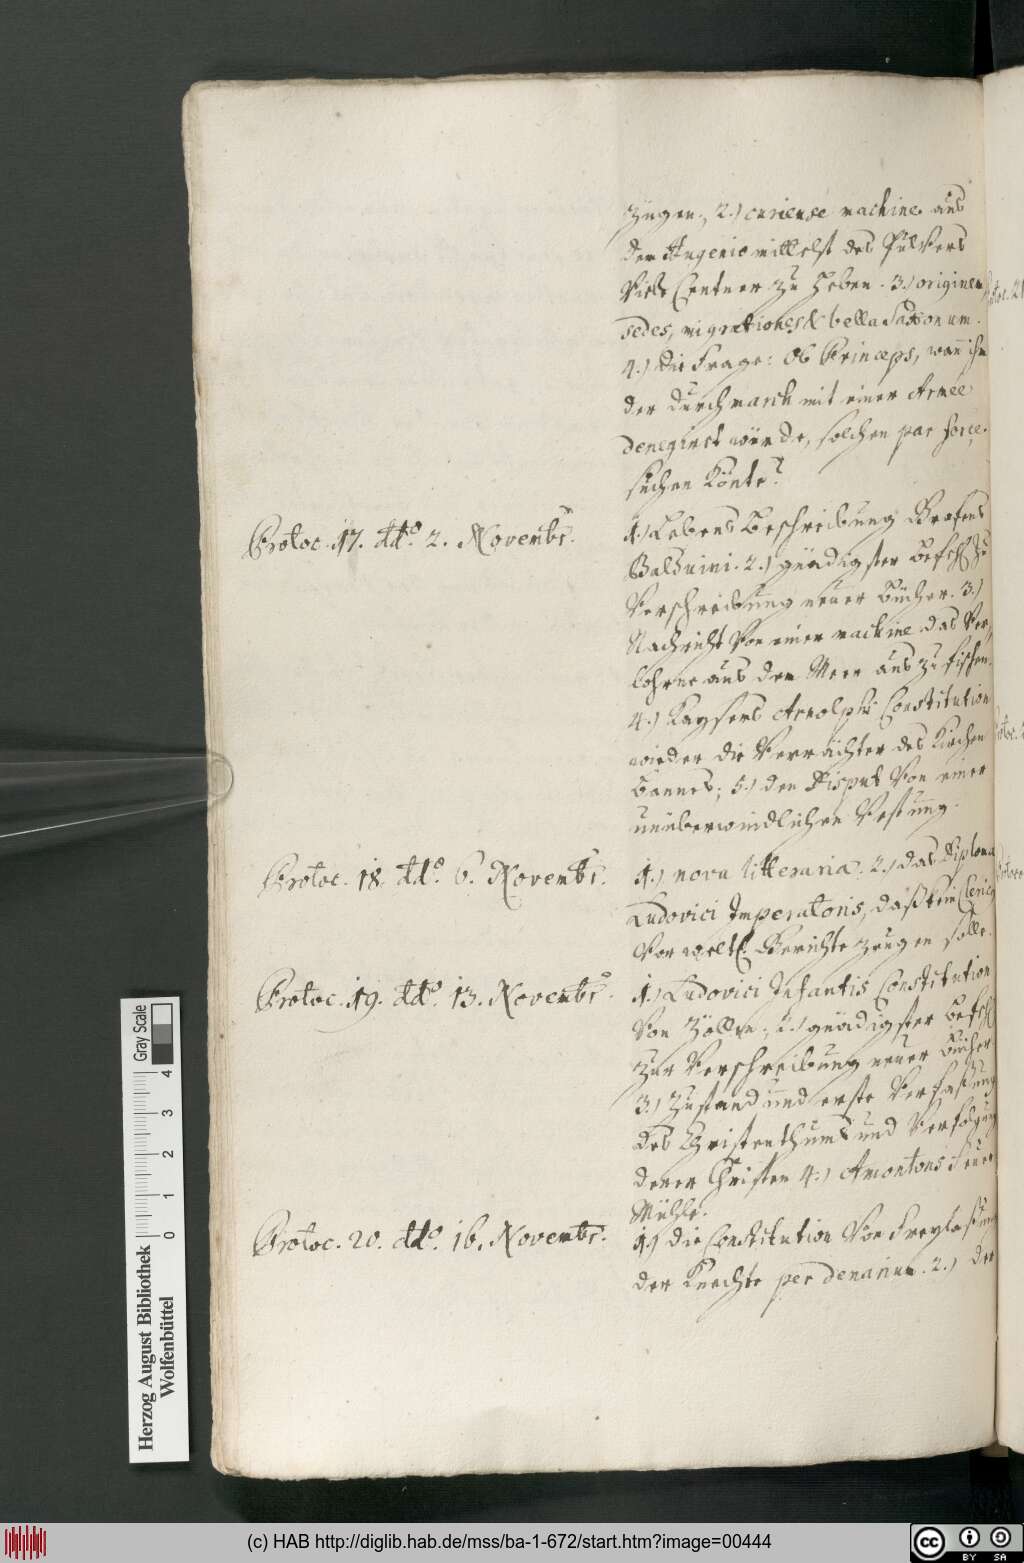 zügen., 2.) curieuse machine aus
dem Augenio mittelst des Pulvers
Viele Centner zu heben. 3.) originem
sedes, migrationes & bella Saxonum.
4.) die Frage: Ob Princeps, wann ihm
der durchmarch mit einer Armée
denegiret würde, solchen par force
suchen könte?
Protoc. 17. dd.º 2. Novembr.
1.) Lebens Beschreibung Grafens
Balduini. 2.) gnädigster Befehl zu
Verschreibung neuer Bücher. 3.)
Nachricht Von einer machine das Ver,
lohrne aus dem Meer aus zu fischen.
4.) Kaysers Arnolphi Constitution
wieder die Verächter des Kirchen
Bannes; 5.) den Disput Von einer
unüberwindlichen Vestung.
Protoc. 18. dd.º 6. Novembr.
1.) nova litteraria. 2.) das Diploma
Ludovici Imperatoris, daß kein Clericus
Vor weltl. Gerichte zeugen solle.
Protoc. 19. dd.º 13. Novembr.
1.) Ludovici Infantis Constitution
Von Zöllen., 2.) gnädigster Befehl
zur Verschreibung neuer Bücher
3.) Zustand und erste Verfaßung
des Christenthums und Verfolgung
derer Christen 4.) Amontons Feuer
Mühle.
Protoc. 20. dd.º 16. Novembr.
1.) die Constitution Von Freylaßung
der Knechte per denarium. 2.) der
Herzog August Bibliothek
Wolfenbüttel
0 1 2 3 4
Gray Scale
(c) HAB http://diglib.hab.de/mss/ba-1-672/start.htm?image=00444
cc BY SA